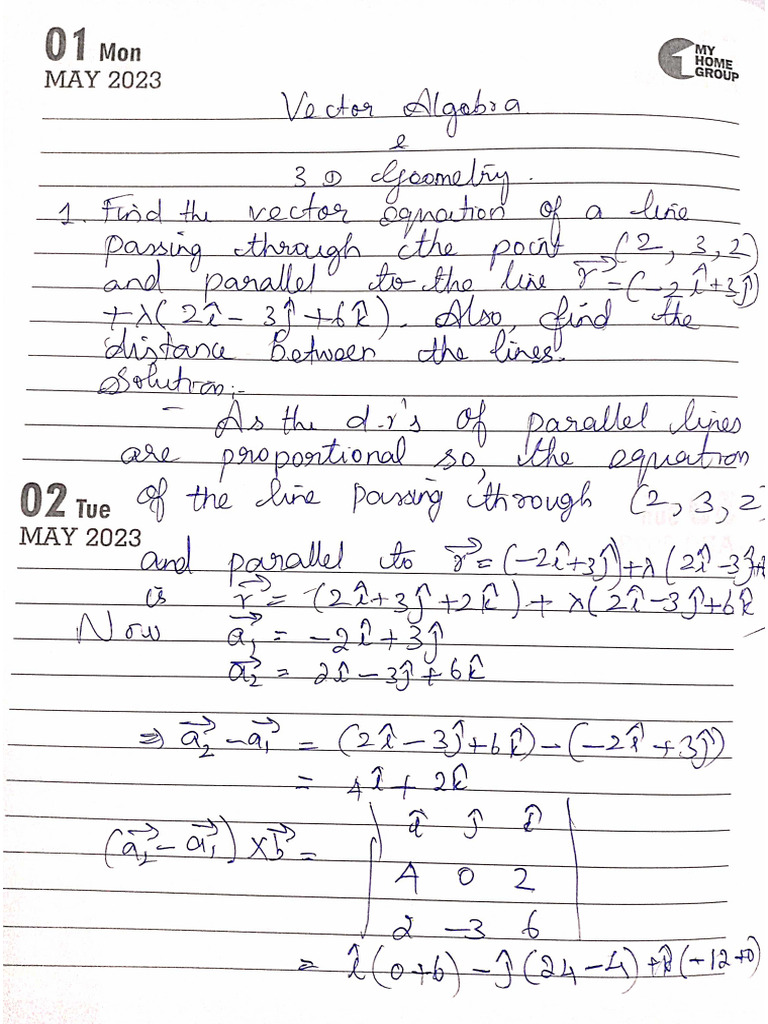 01 Mon
MAY 2023
MY
HOME
GROUP
Vector Algebra
&
3 D Geometry.
1. Find the vector equation of a line
passing through the point (2, 3, 2)
and parallel to the line r⃗ = (-2î+3ĵ)
+λ(2î - 3ĵ +6k̂). Also, find the
distance between the lines.
Solution:-
- As the d.r's of parallel lines
are proportional so, the equation
02 Tue
MAY 2023
of the line passing through (2, 3, 2)
and parallel to r⃗ = (-2î+3ĵ)+λ(2î-3ĵ+
is r⃗ = (2î+3ĵ+2k̂)+ λ(2î-3ĵ+6k̂
Now a⃗₁ = -2î+3ĵ
a⃗₂ = 2î-3ĵ+6k̂
⇒ a⃗₂ - a⃗₁ = (2î-3ĵ+6k̂)-(-2î+3ĵ)
= 4î+2k̂
(a⃗₂ - a⃗₁)×b⃗ = | î ĵ k̂ |
4 0 2
2 -3 6
= î(0+6) - ĵ(24-4)+k̂(-12+0)